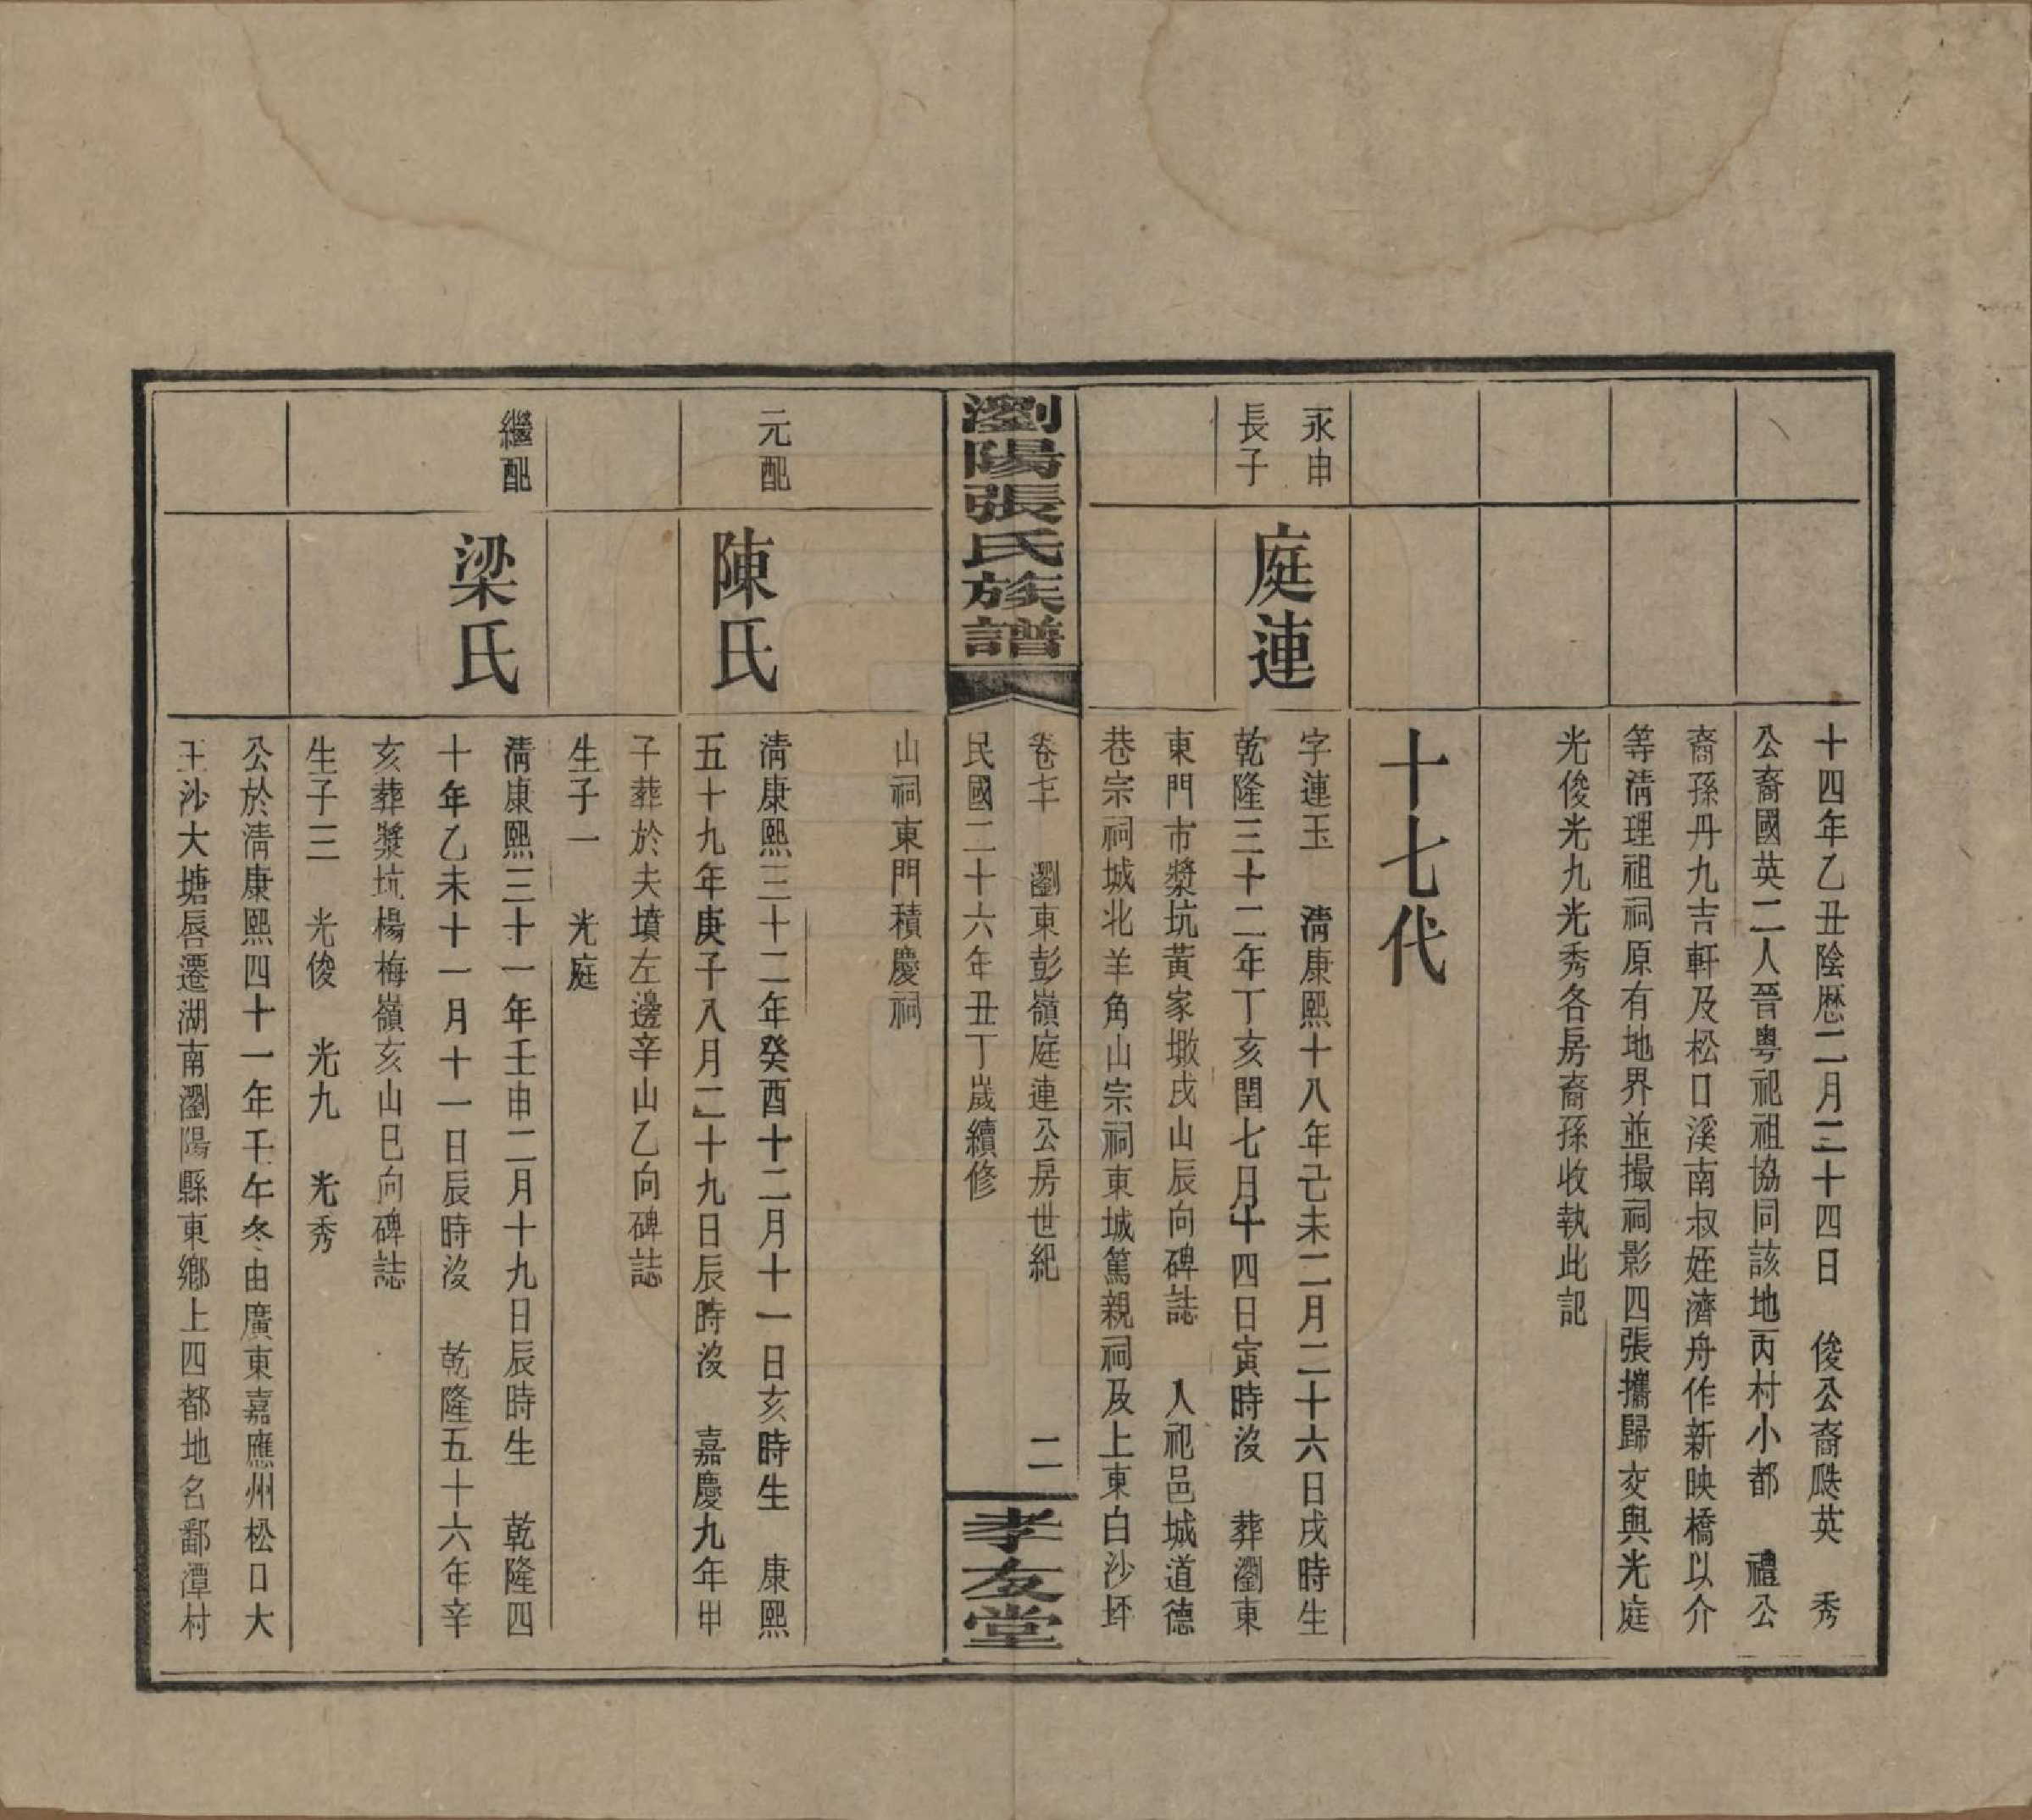 十四年乙丑陰歷二月二十四日　俊公裔颷英　秀
公裔國英二人晉粤祀祖協同該地丙村小都　禮公
裔孫丹九吉軒及松口溪南叔姪濟舟作新映橋以介
等淸理祖祠原有地界並撮祠影四張攜歸交與光庭
光俊光九光秀各房裔孫收執此記
十七代
永申
長子
庭連
字連玉　淸康熙十八年己未二月二十六日戌時生
乾隆三十二年丁亥閏七月十四日寅時沒　葬瀏東
東門市漿坑黃家墩戌山辰向碑誌　人祀邑城道德
巷宗祠城北羊角山宗祠東城篤親祠及上東白沙坪
瀏陽張氏族譜
卷七　瀏東彭嶺庭連公房世紀
民國二十六年丑丁歲續修
二
孝友堂
山祠東門積慶祠
元配
陳氏
淸康熙三十二年癸酉十二月十一日亥時生　康熙
五十九年庚子八月二十九日辰時沒　嘉慶九年甲
子葬於夫墳左邊辛山乙向碑誌
生子一　光庭
繼配
梁氏
淸康熙三十一年壬申二月十九日辰時生　乾隆四
十年乙未十一月十一日辰時沒　乾隆五十六年辛
亥葬漿坑楊梅嶺亥山巳向碑誌
生子三　光俊　光九　光秀
公於淸康熙四十一年壬午冬由廣東嘉應州松口大
王沙大塘唇遷湖南瀏陽縣東鄉上四都地名鄱潭村